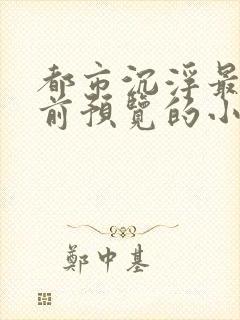 都市沉浮最
前預覽的小
鄭中基